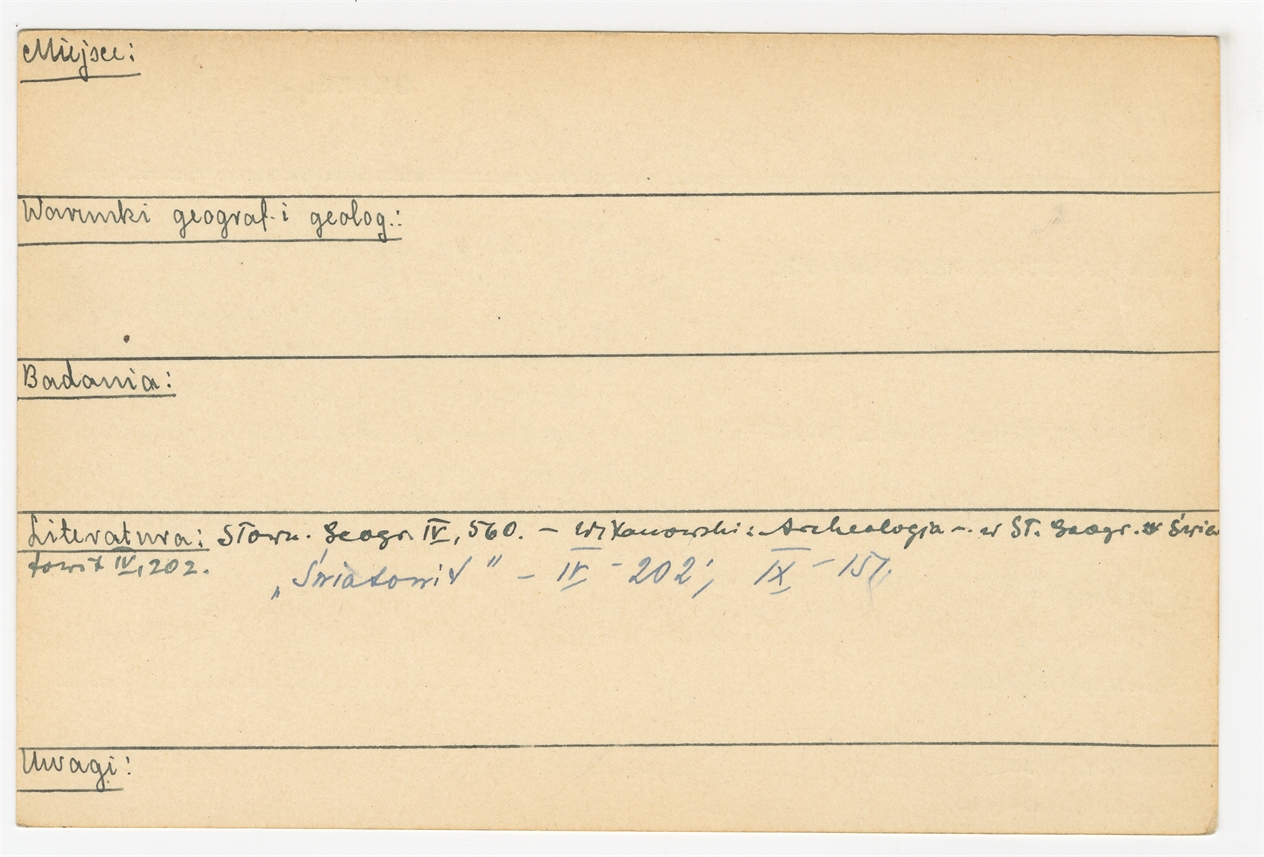 Miejsce:
Warunki geograf. i geolog.:
Badania:
Literatura: Słown. Geogr. IV, 560. – Witanowski: Archeologja – w Sł. Geogr. Świa
towit IV, 202.
„Światowit" – IV – 202; IX – 157.
Uwagi: